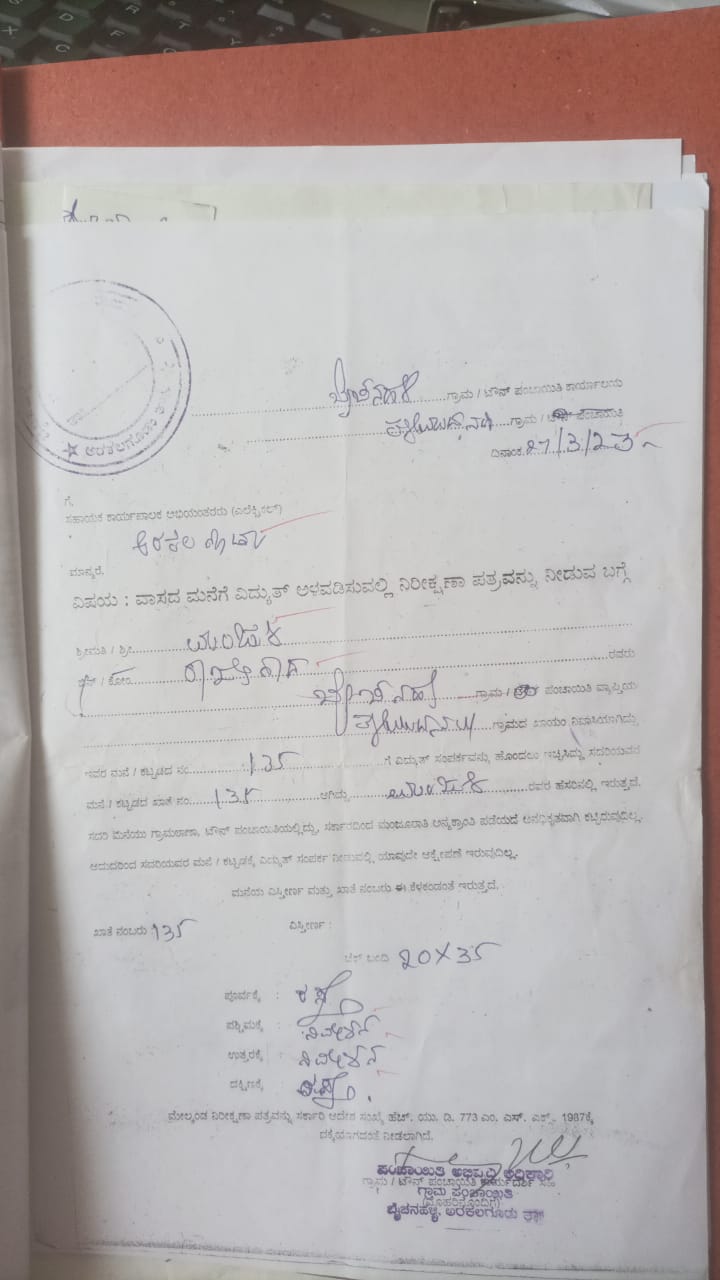 ಅರಕಲಗೂಡು
ಗ್ರಾಮ / ಟೌನ್ ಪಂಚಾಯಿತಿ ಕಾರ್ಯಾಲಯ
ಗ್ರಾಮ / ಪಂಚಾಯಿತಿ
ದಿನಾಂಕ 27/3/23
ಗೆ,
ಸಹಾಯಕ ಕಾರ್ಯಪಾಲಕ ಅಭಿಯಂತರರು (ಎಲೆಕ್ಟ್ರಿಕಲ್)
ಅರಕಲಗೂಡು
ಮಾನ್ಯರೆ,
ವಿಷಯ : ವಾಸದ ಮನೆಗೆ ವಿದ್ಯುತ್ ಅಳವಡಿಸುವಲ್ಲಿ ನಿರೀಕ್ಷಣಾ ಪತ್ರವನ್ನು ನೀಡುವ ಬಗ್ಗೆ
ಶ್ರೀಮತಿ / ಶ್ರೀ
ಬಿನ್ / ಕೋಂ ರವರು
ಗ್ರಾಮ / ಪಂಚಾಯಿತಿ ವ್ಯಾಪ್ತಿಯ
ಗ್ರಾಮದ ಖಾಯಂ ನಿವಾಸಿಯಾಗಿದ್ದು
ಇವರ ಮನೆ / ಕಟ್ಟಡದ ನಂ. 135 ಗೆ ವಿದ್ಯುತ್ ಸಂಪರ್ಕವನ್ನು ಹೊಂದಲು ಇಚ್ಛಿಸಿದ್ದು ಸದರಿಯವರ
ಮನೆ / ಕಟ್ಟಡದ ಖಾತೆ ನಂ. 135 ಆಗಿದ್ದು ರವರ ಹೆಸರಿನಲ್ಲಿ ಇರುತ್ತದೆ.
ಸದರಿ ಮನೆಯು ಗ್ರಾಮಠಾಣಾ, ಟೌನ್ ಪಂಚಾಯಿತಿಯಲ್ಲಿದ್ದು, ಸರ್ಕಾರದಿಂದ ಮಂಜೂರಾತಿ ಪಡೆಯದೆ ಅನಧಿಕೃತವಾಗಿ ಕಟ್ಟಿರುವುದಿಲ್ಲ.
ಆದುದರಿಂದ ಸದರಿಯವರ ಮನೆ / ಕಟ್ಟಡಕ್ಕೆ ವಿದ್ಯುತ್ ಸಂಪರ್ಕ ನೀಡುವಲ್ಲಿ ಯಾವುದೇ ಆಕ್ಷೇಪಣೆ ಇರುವುದಿಲ್ಲ.
ಮನೆಯ ವಿಸ್ತೀರ್ಣ ಮತ್ತು ಖಾತೆ ನಂಬರು ಈ ಕೆಳಕಂಡಂತೆ ಇರುತ್ತದೆ.
ಖಾತೆ ನಂಬರು : 135 ವಿಸ್ತೀರ್ಣ :
ಚೆಕ್ ಬಂದಿ 20X35
ಪೂರ್ವಕ್ಕೆ : ರಸ್ತೆ
ಪಶ್ಚಿಮಕ್ಕೆ : ನಿವೇಶನ
ಉತ್ತರಕ್ಕೆ : ನಿವೇಶನ
ದಕ್ಷಿಣಕ್ಕೆ :
ಮೇಲ್ಕಂಡ ನಿರೀಕ್ಷಣಾ ಪತ್ರವನ್ನು ಸರ್ಕಾರಿ ಆದೇಶ ಸಂಖ್ಯೆ ಹೆಚ್. ಯು. ಡಿ. 773 ಎಂ. ಎಸ್. ಎಕ್ಸ್. 1987ಕ್ಕೆ
ನೀಡಲಾಗಿದೆ.
ಪಂಚಾಯಿತಿ ಅಭಿವೃದ್ಧಿ ಅಧಿಕಾರಿ
ಗ್ರಾಮ / ಟೌನ್ ಪಂಚಾಯಿತಿ ಕಾರ್ಯದರ್ಶಿ ಸಹಿ
ಗ್ರಾಮ ಪಂಚಾಯಿತಿ
(ಮೊಹರಿನೊಂದಿಗೆ)
ಬೈಚನಹಳ್ಳಿ, ಅರಕಲಗೂಡು ತಾ||